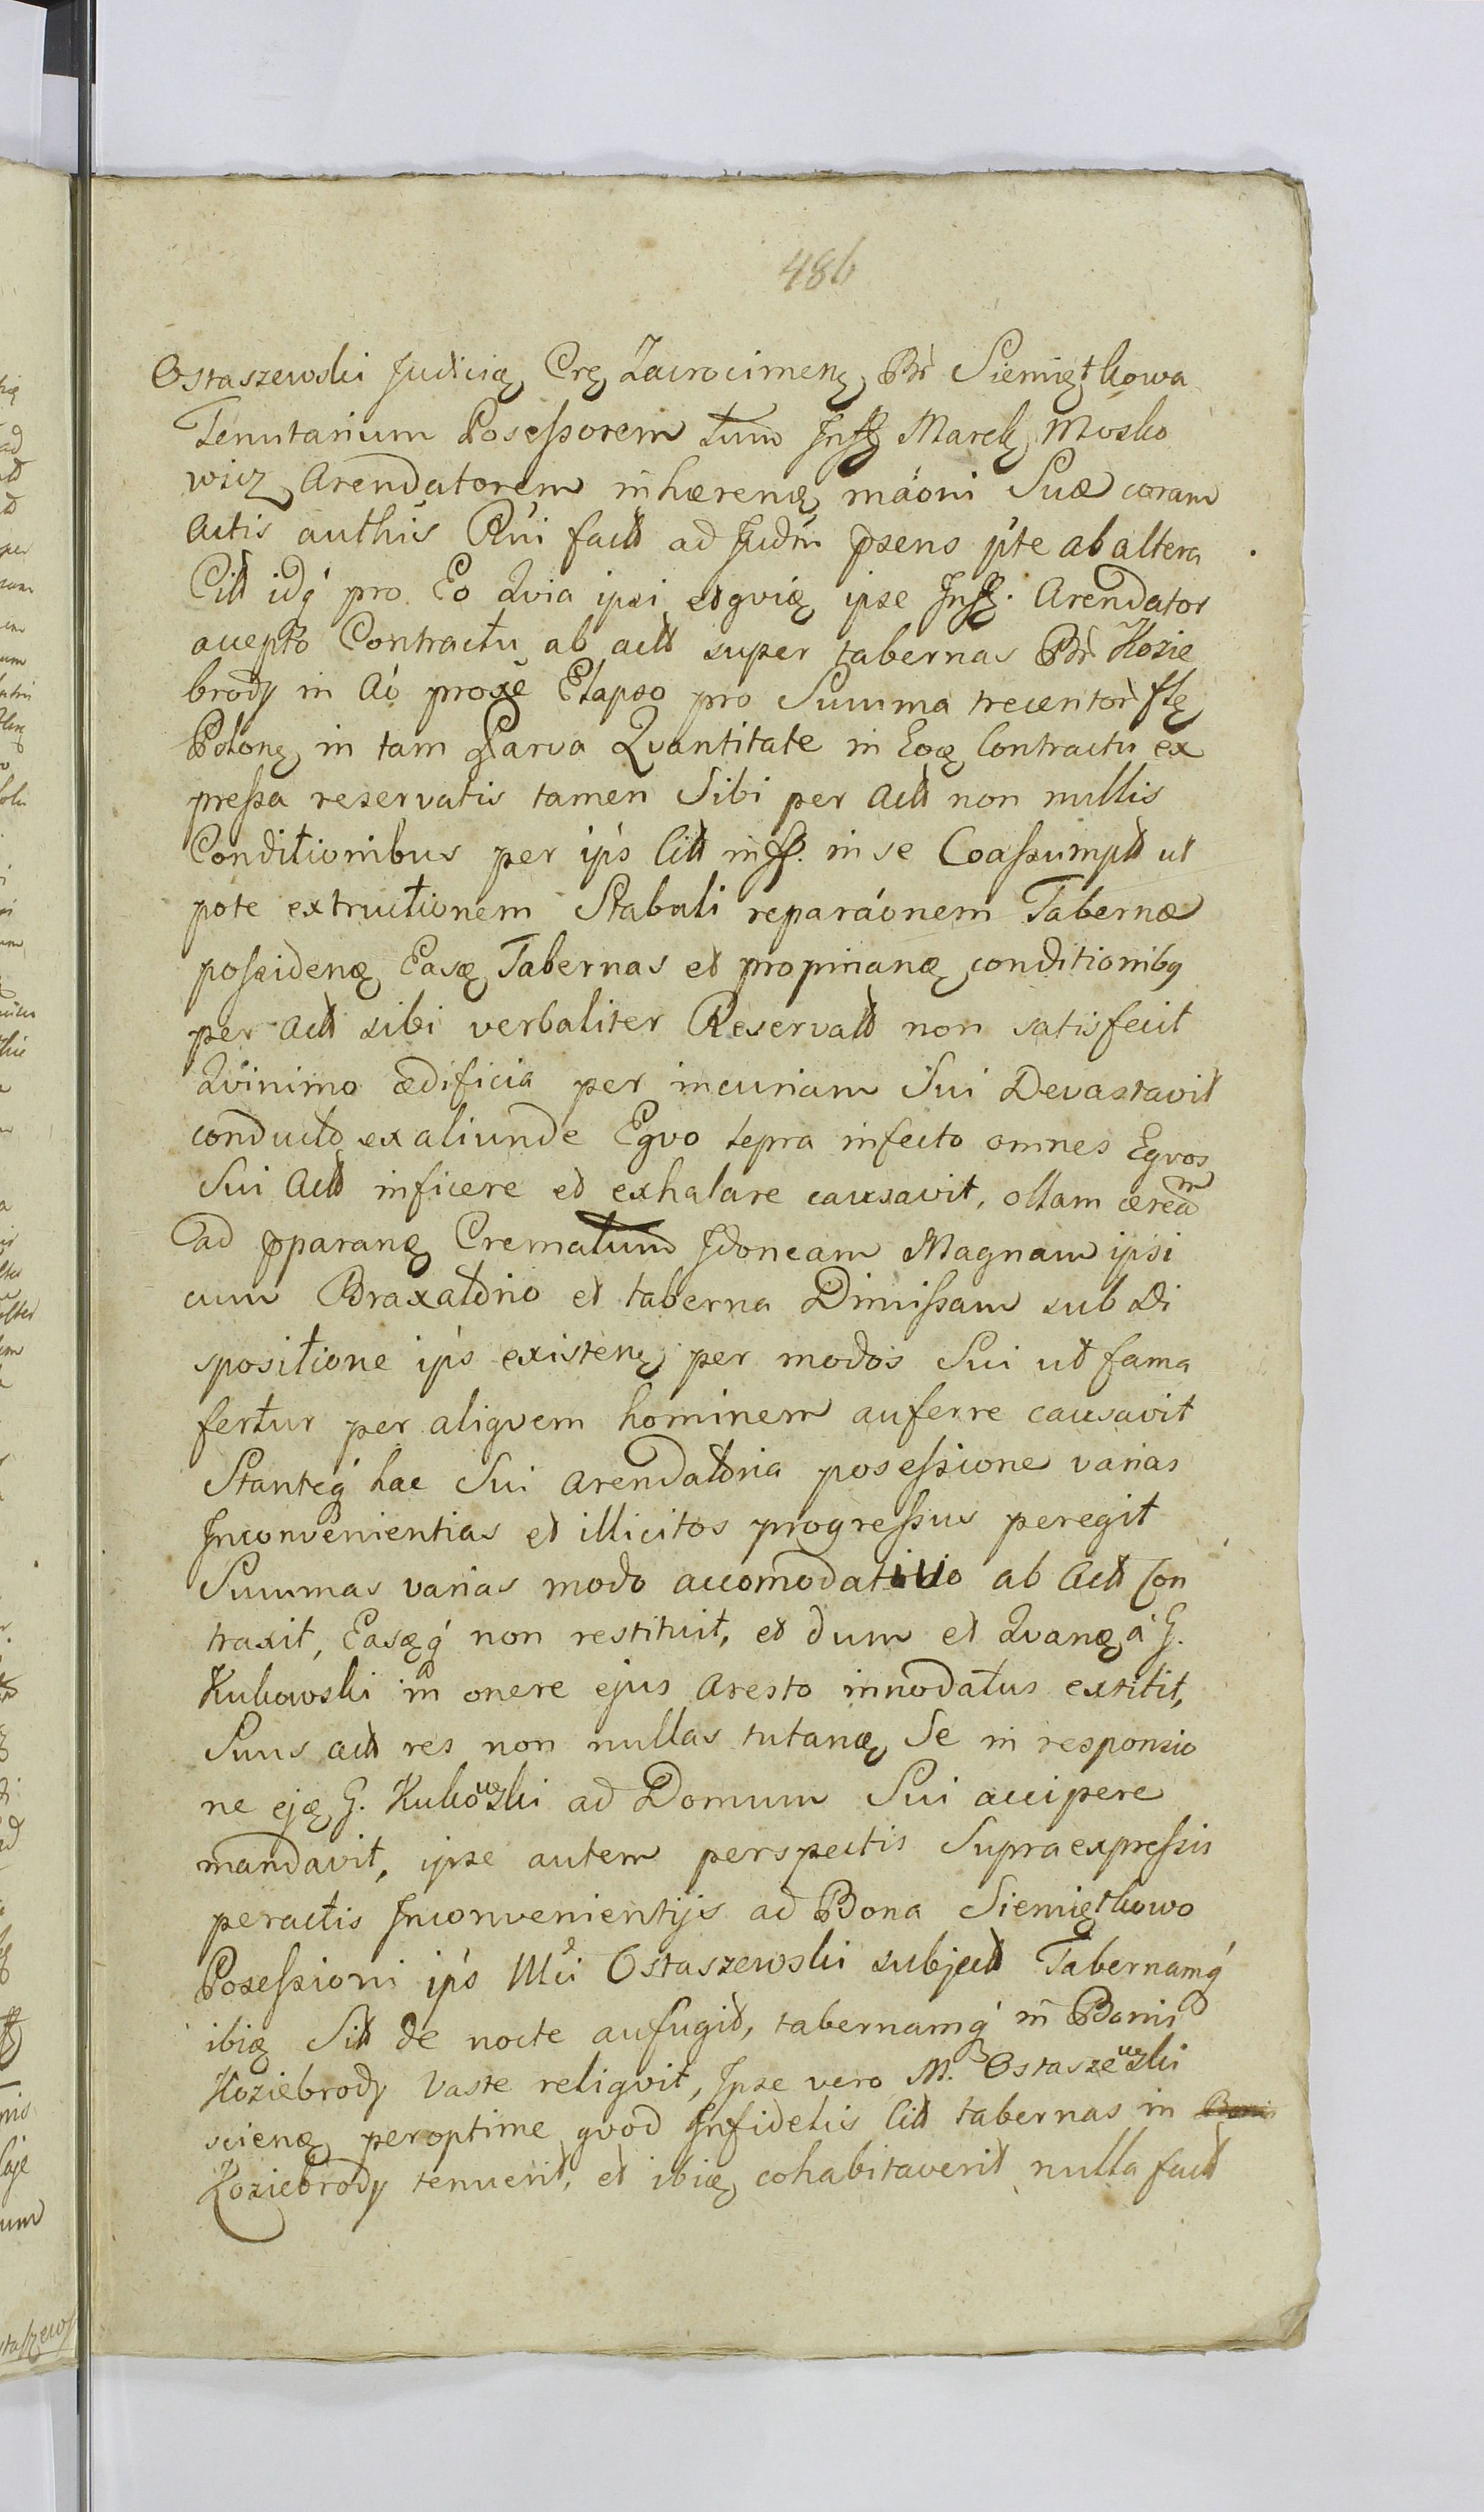 486
Ostaszewski Judicię Crę Zacrocimenę Br̃ Siemiętkowa
Tenutarium Posessorem tum Inf̃f̃ Marek Mosko
wicz Arendatorem inhærenę máoni Suæ coram
actis authĩs Rńi factt ad Judm̃ p̃sens ṕte ab altera
Citt idq́ pro Eo Qvia ipsi etqvię ipse Inf̃f̃. Arendator
accepto Contractu ab actt super tabernas Br̃ Kozie
brody in Aó proxẽ Elapso pro Summa trecentor̃ flę
Polonę in tam Parva Qvantitate in Eoę Contractu ex
pressa reservatis tamen Sibi per Actt non nullis
Conditionibus per iṕs Citt inff. in se Coassumptt ut
pote extructionem Stabuli reparáonem Tabernæ
possidenę Easę Tabernas et propinanę conditionibq
per Actt sibi verbaliter Reservatt non satisfecit
Qvinimo ædificia per incuriam Sui Devastavit
conducto ex aliunde Eqvo lepra infecto omnes Eqvos
Sui Actt inficere et exhalare causavit, ollam æream
ad p̃paranę Crematum Idoneam Magnam ipsi
cum Braxatorio et taberna Dimissam sub Di
spositione iṕs existenę per modos Sui ut fama
fertur per aliqvem hominem auferre causavit
Stanteq́ hac Sui Arendatoria posessione varias
Inconvenientias et illicitos progressus peregit
Summas varias modo accomodativo ab Actt Con
traxit, Easęq́ non restituit, et dum et Qvanę á G.
Kukowski in onere ejus Aresto innodatus extitit,
Suus actt res non nullas tutanę Se in responsio
ne eję G. Kukowski ad Domum Sui accipere
mandavit, ipse autem perspectis Supraexpressis
peractis Inconvenientijs ad Bona Siemiętkowo
Posessioni iṕs Mci Ostaszewski subjectt Tabernamq́
ibię Sitt de nocte aufugit, tabernamq́ in Bonis
Koziebrody Vaste reliqvit, Ipse vero M. Ostaszewski
scienę peroptime qvod Infidelis Citt tabernas in Bonis
Koziebrody tenuerit, et ibię cohabitaverit nulla factt